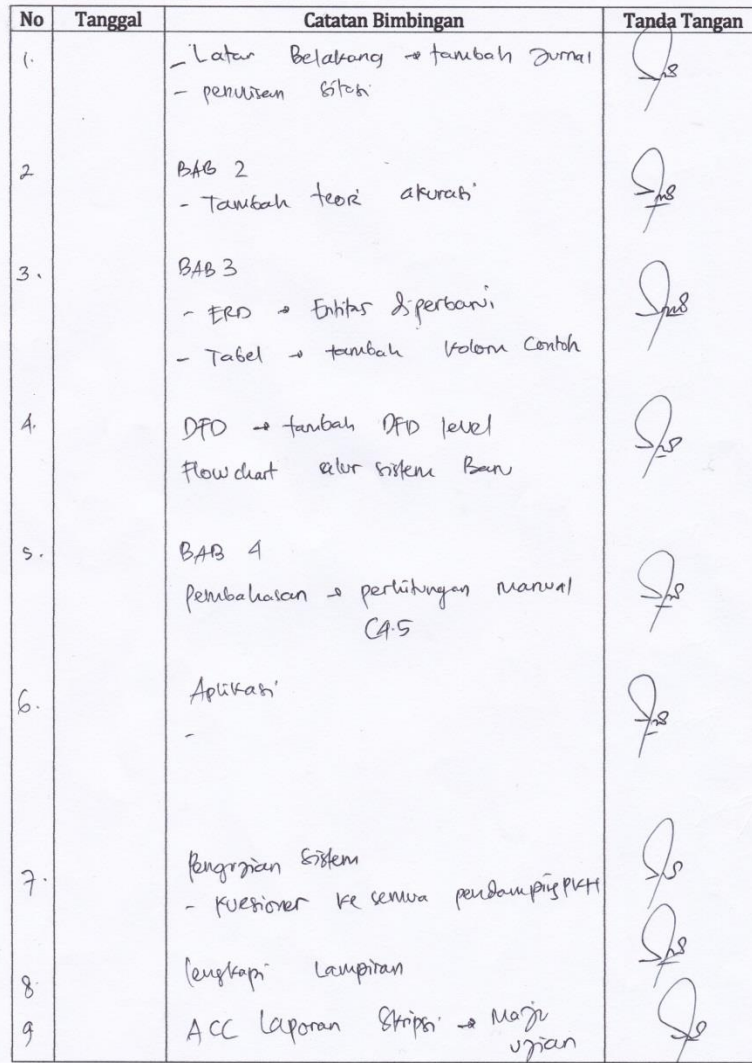 No Tanggal Catatan Bimbingan Tanda Tangan
1. - Latar Belakang → tambah Jurnal
- penulisan sitasi
2 BAB 2
- Tambah teori akurasi
3. BAB 3
- ERD → Entitas diperbarui
- Tabel → tambah kolom Contoh
4. DFD → tambah DFD level
Flowchart alur sistem Baru
5. BAB 4
Pembahasan → perhitungan manual
C4.5
6. Aplikasi
-
7. Pengujian Sistem
- kuesioner ke semua pendamping PKH
8. lengkapi Lampiran
9 ACC Laporan Skripsi → Maju
ujian